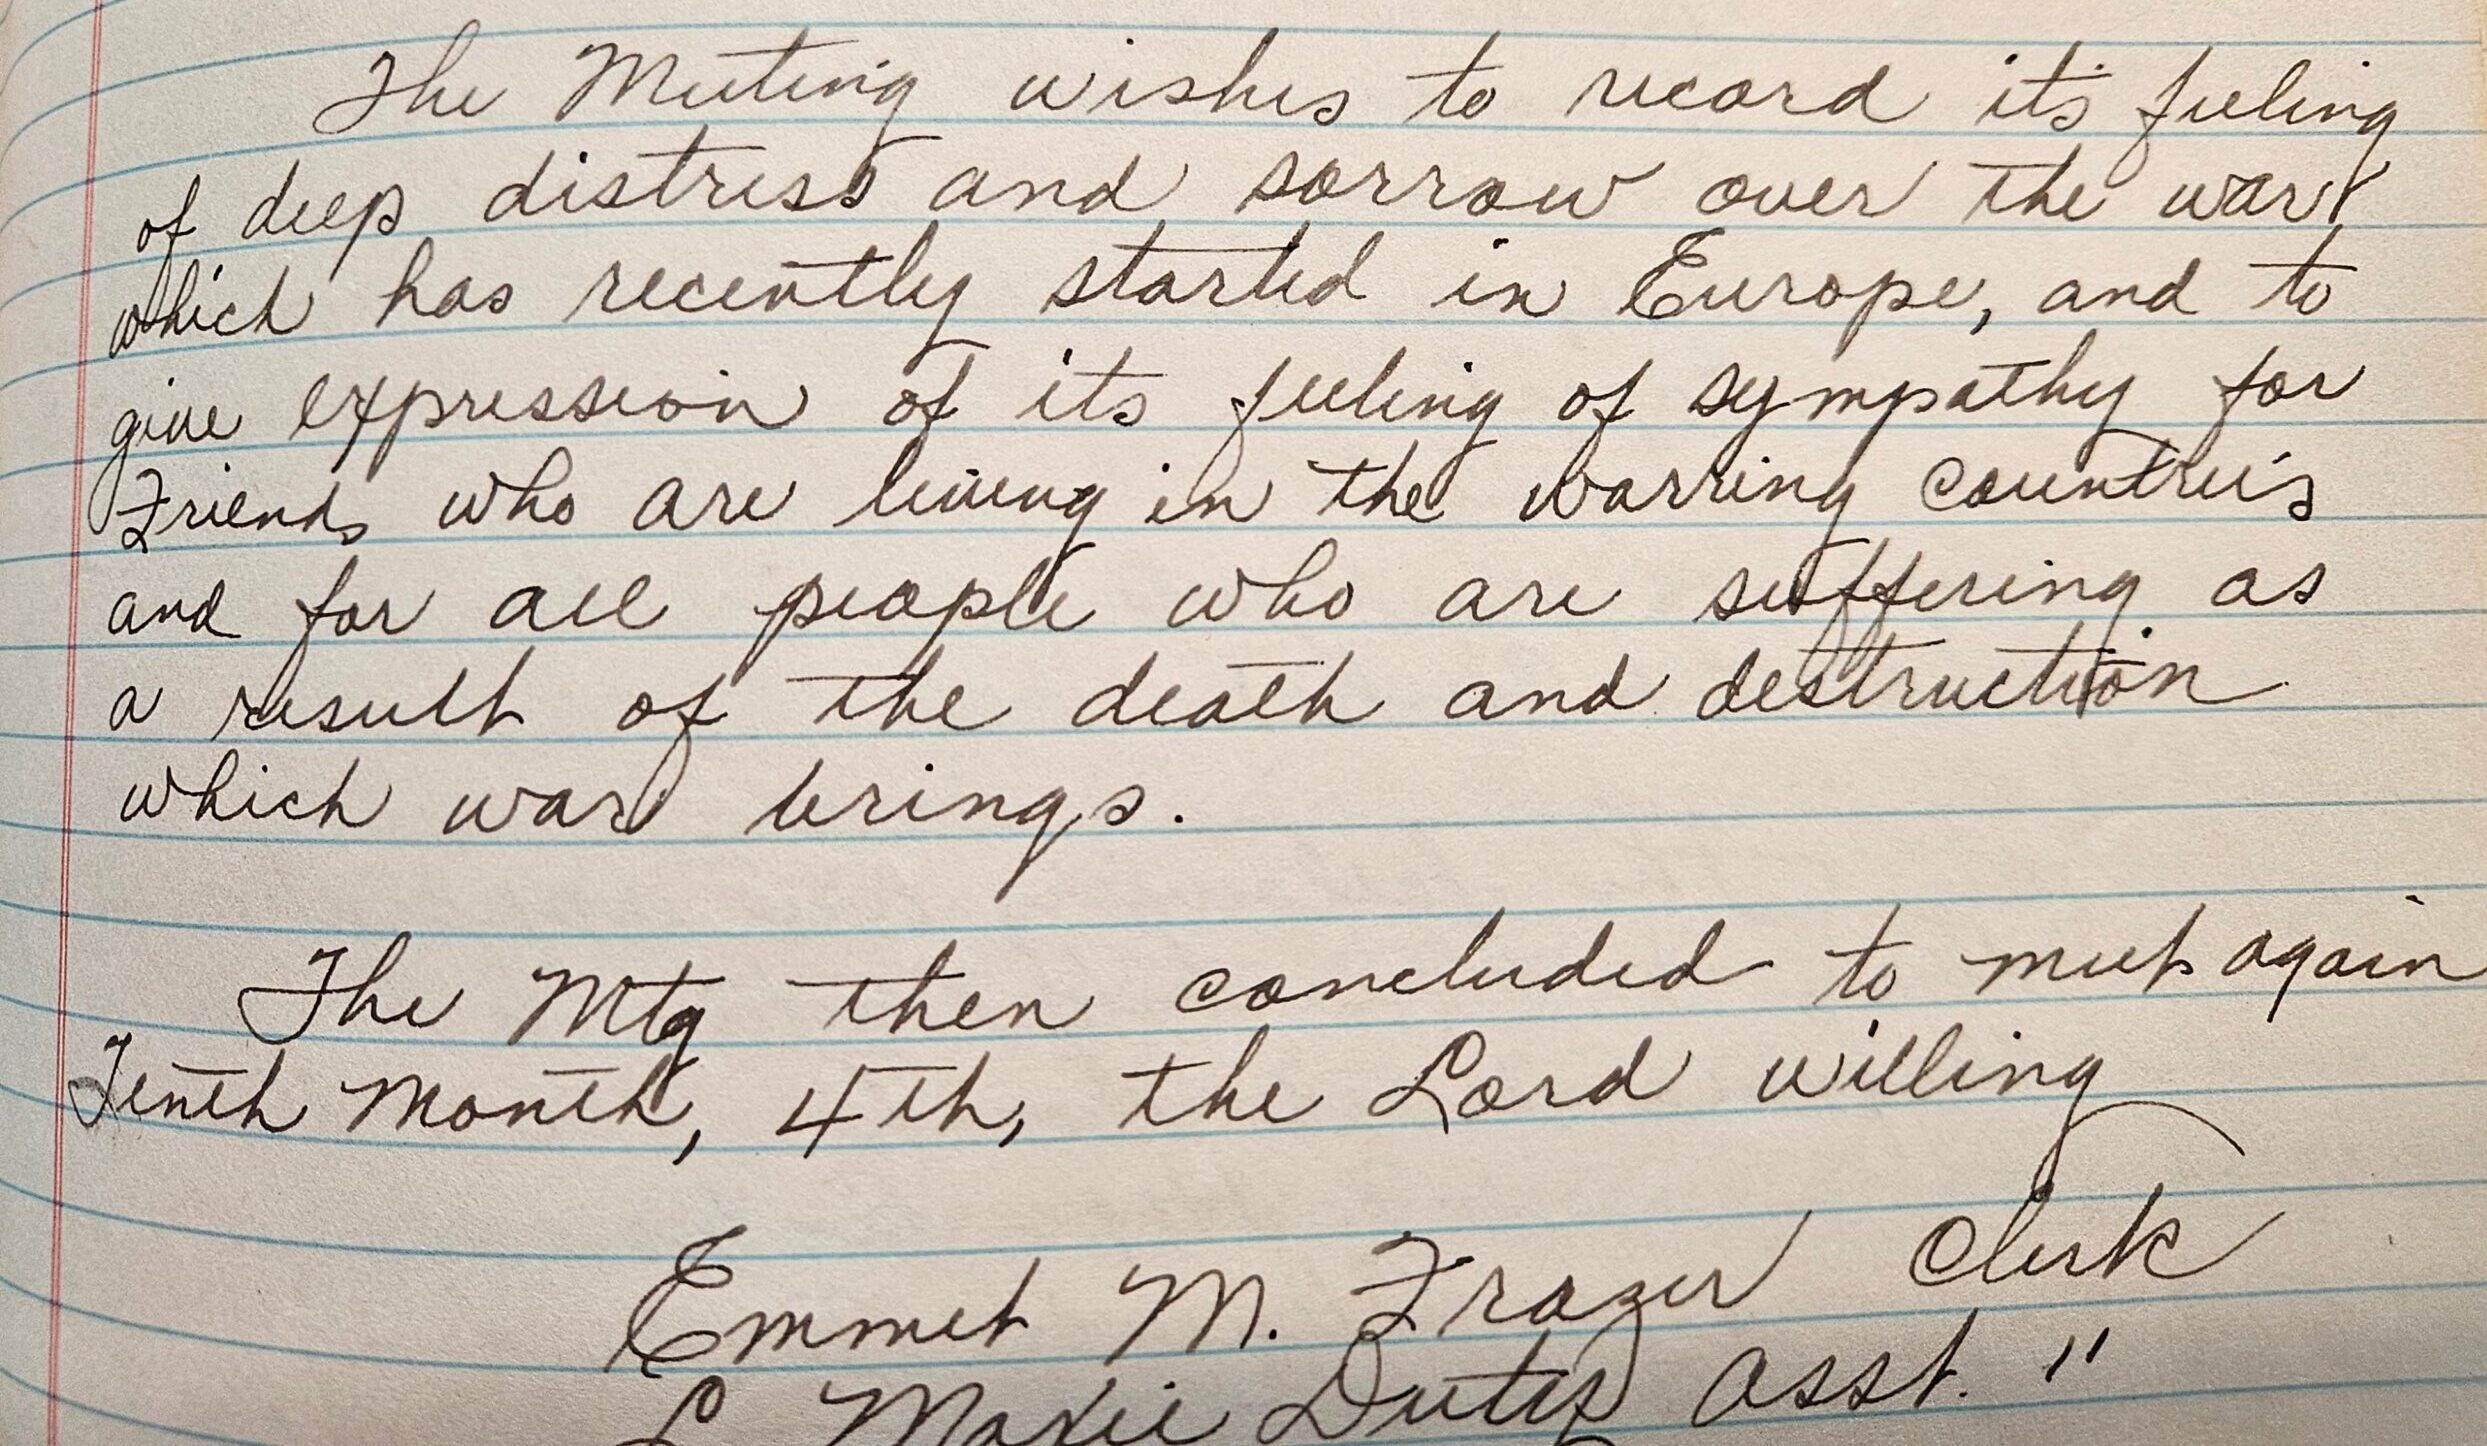 The Meeting wishes to record its feeling
of deep distress and sorrow over the war
which has recently started in Europe, and to
give expression of its feeling of sympathy for
Friends who are living in the warring countries
and for all people who are suffering as
a result of the death and destruction
which war brings.
The Mtg then concluded to meet again
Tenth Month, 4th, the Lord willing
Emmet M. Frazer Clerk
Maxie Asst. "